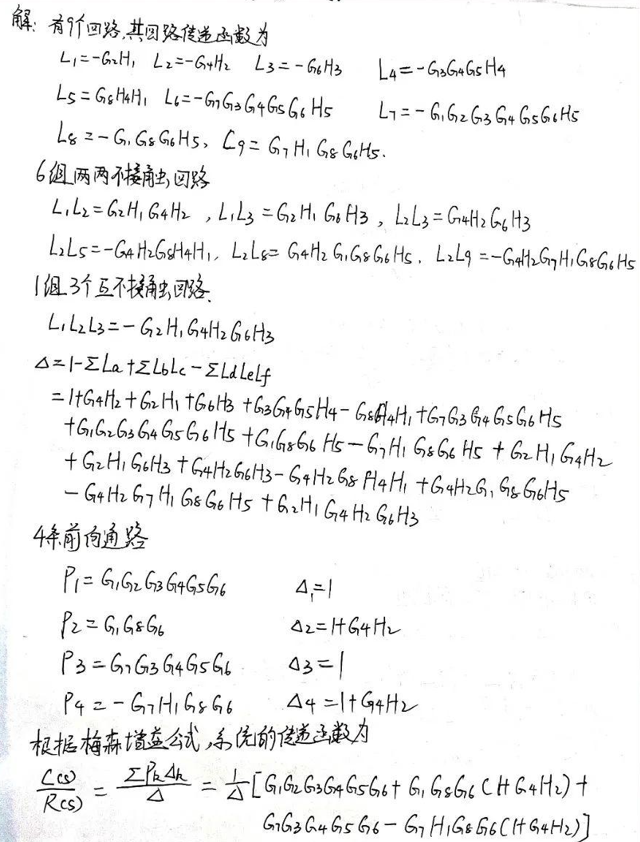 解: 有9个回路,其回路传递函数为
L1=-G2H1 L2=-G4H2 L3=-G6H3 L4=-G3G4G5H4
L5=G8H4H1 L6=-G7G3G4G5G6H5 L7=-G1G2G3G4G5G6H5
L8=-G1G8G6H5, L9=G7H1G8G6H5.
6组两两不接触回路
L1L2=G2H1G4H2, L1L3=G2H1G6H3, L2L3=G4H2G6H3
L2L5=-G4H2G8H4H1, L2L8=G4H2G1G8G6H5. L2L9=-G4H2G7H1G8G6H5
1组3个互不接触回路.
L1L2L3=-G2H1G4H2G6H3
Δ=1-ΣLa+ΣLbLc-ΣLdLeLf
=1+G4H2+G2H1+G6H3+G3G4G5H4-G8H4H1+G7G3G4G5G6H5
+G1G2G3G4G5G6H5+G1G8G6H5-G7H1G8G6H5+G2H1G4H2
+G2H1G6H3+G4H2G6H3-G4H2G8H4H1+G4H2G1G8G6H5
-G4H2G7H1G8G6H5+G2H1G4H2G6H3
4条前向通路
P1=G1G2G3G4G5G6 Δ1=1
P2=G1G8G6 Δ2=1+G4H2
P3=G7G3G4G5G6 Δ3=1
P4=-G7H1G8G6 Δ4=1+G4H2
根据梅森增益公式,系统的传递函数为
C(s)/R(s)=ΣPkΔk/Δ=1/Δ[G1G2G3G4G5G6+G1G8G6(1+G4H2)+
G7G3G4G5G6-G7H1G8G6(1+G4H2)]